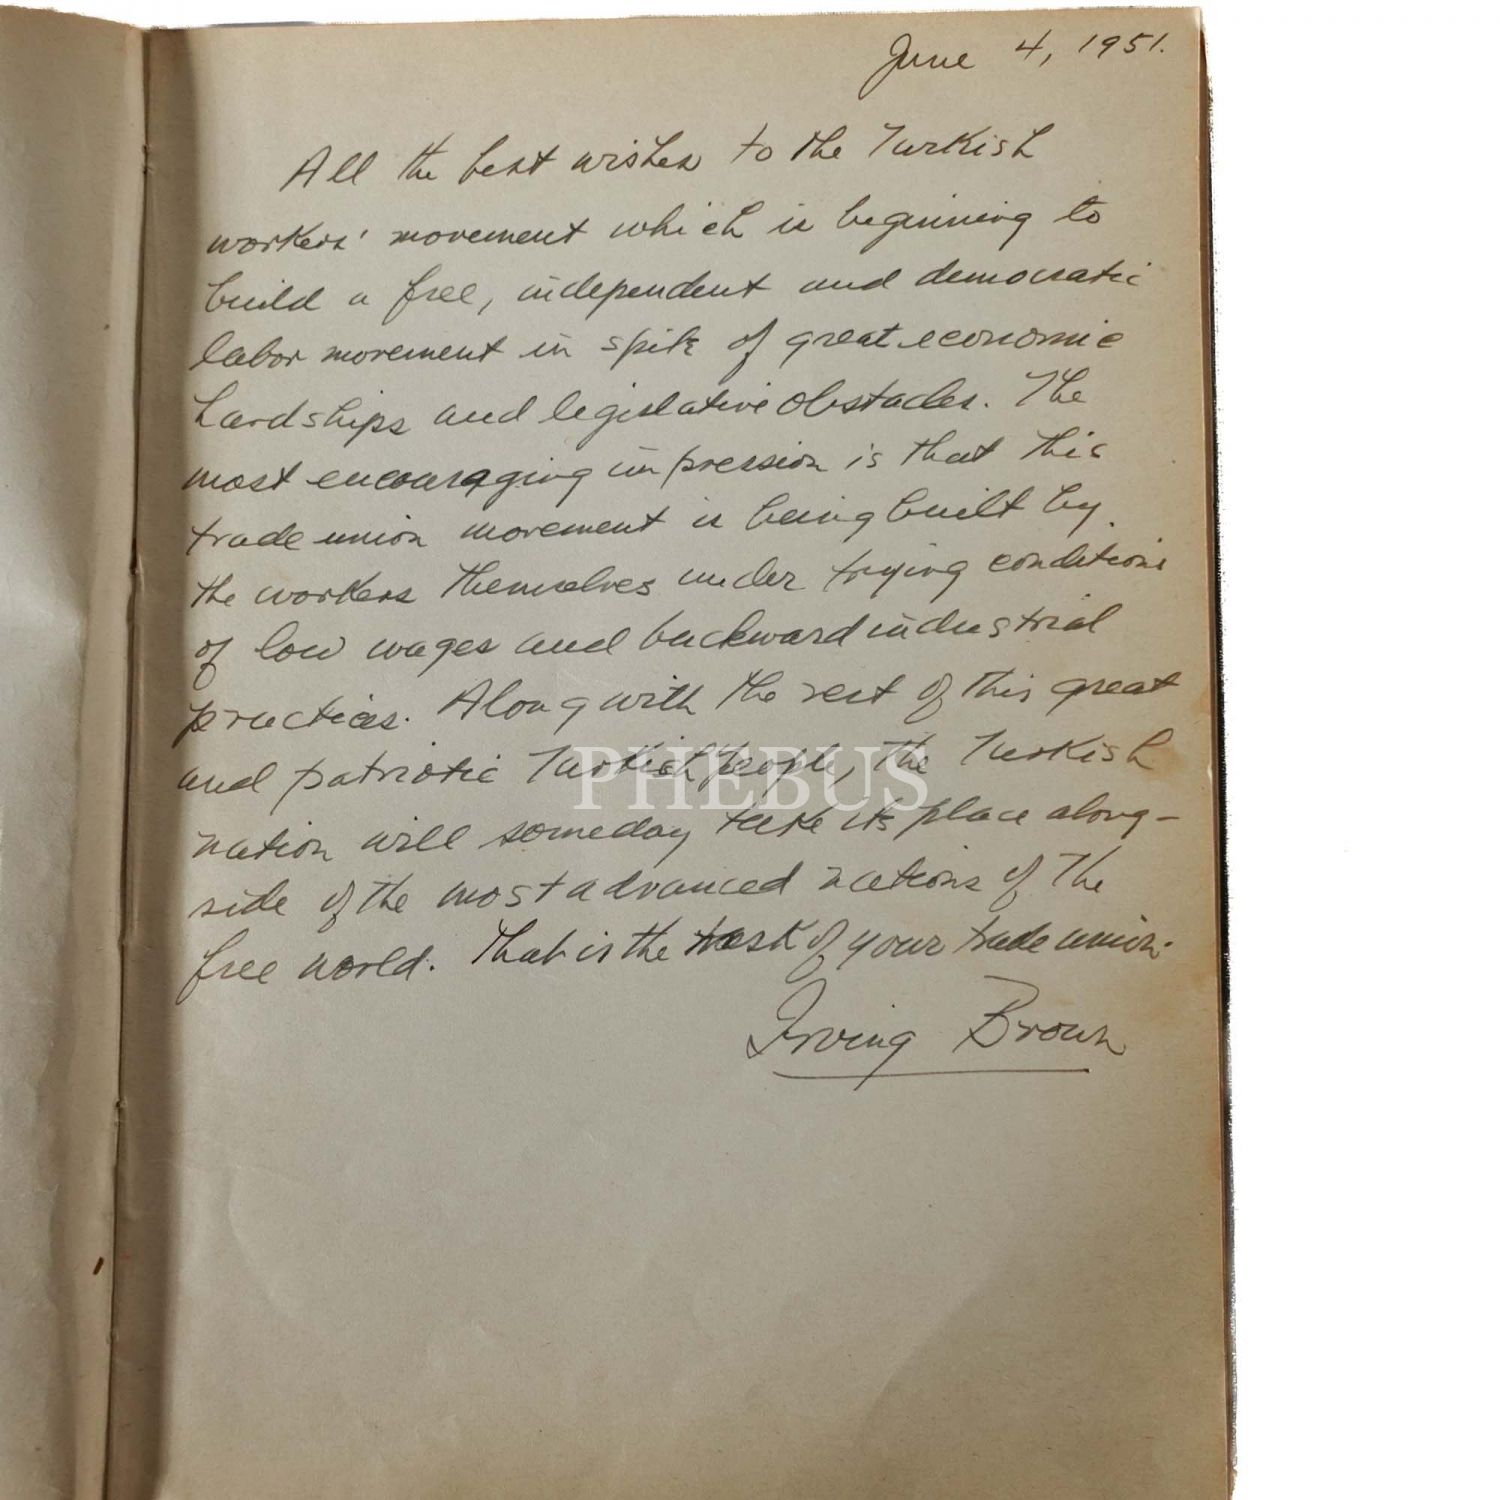 June 4, 1951.
All the best wishes to the Turkish
workers' movement which is beginning to
build a free, independent and democratic
labor movement in spite of great economic
hardships and legislative obstacles. The
most encouraging impression is that this
trade union movement is being built by
the workers themselves under trying conditions
of low wages and backward industrial
practices. Along with the rest of this great
and patriotic Turkish people, the Turkish
PHEBUS
nation will someday take its place along-
side of the most advanced nations of the
free world. That is the task of your trade union.
Irving Brown